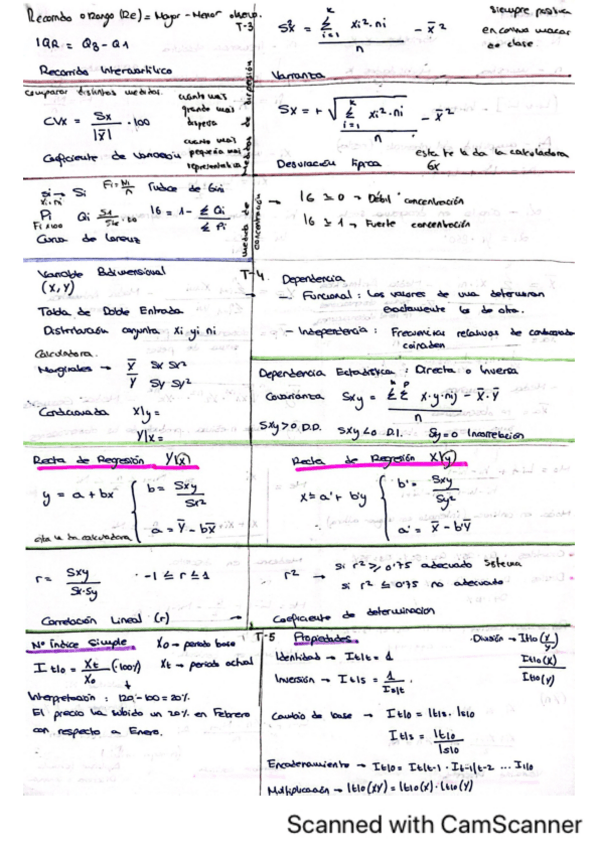 Recorrido o Rango (Re) = Mayor - Menor observ.
T-3
IQR = Q3 - Q1
Recorrido Intercuartílico
Sx² = Σ(i=1, k) xi²·ni / n - x̄²
siempre positiva
Varianza
comparar distintas medidas.
CVx = Sx / |x̄| · 100
cuanto mas grande mas dispersa
cuanto mas pequeña mas representativa
Coeficiente de Variación
Medidas de dispersión
Sx = + √ Σ(i=1, k) xi²·ni / n - x̄²
Desviación Típica
esta te la da la calculadora
σx
Fi = Ni/n
Indice de Gini
Pi
Fi x100
Qi
IG = 1 - ΣQi / ΣPi
Curva de Lorenz
medida de concentración
→ IG ≥ 0 → Débil concentración
IG ≥ 1 → Fuerte concentración
Variable Bidimensional
(X, Y)
Tabla de Doble Entrada
Distribución conjunta xi yi ni
T-4
Dependencia
- Funcional: Los valores de una determinan exactamente los de otra.
- Independencia: Frecuencias relativas de
coinciden
Calculadora.
Marginales → x̄ Sx Sx²
ȳ Sy Sy²
Condicionada X/y =
Y/x =
Dependencia Estadística: Directa o Inversa
Covarianza Sxy = ΣΣ x·y·nij / n - x̄·ȳ
Sxy>0 D.D. Sxy<0 D.I. Sy=0 Incorrelación
Recta de Regresión Y/(x)
y = a + bx
b = Sxy / Sx²
a = ȳ - bx̄
esta la da calculadora
Recta de Regresión X/(y)
x = a' + b'y
b' = Sxy / Sy²
a' = x̄ - b'ȳ
r = Sxy / Sx·Sy
· -1 ≤ r ≤ 1
Correlación Lineal (r)
r² → si r² ≥ 0'75 adecuado sistema
si r² ≤ 0'75 no adecuado
Coeficiente de determinacion
Nº Índice Simple
X0 → periodo base
I t/0 = Xt / X0 (100%)
Xt → periodo actual
Interpretación: 120 - 100 = 20%
El precio ha subido un 20% en Febrero
con respecto a Enero.
T-5
Propiedades
Identidad → I t/t = 1
Inversión → I t/s = 1 / I s/t
Cambio de base → I t/0 = I t/s · I s/0
I t/s = I t/0 / I s/0
Encadenamiento → I t/0 = I t/t-1 · I t-1/t-2 ... I 1/0
Multiplicación → I t/0 (XY) = I t/0 (X) · I t/0 (Y)
· División → I t/0 (X/Y)
I t/0 (X)
I t/0 (Y)
Scanned with CamScanner